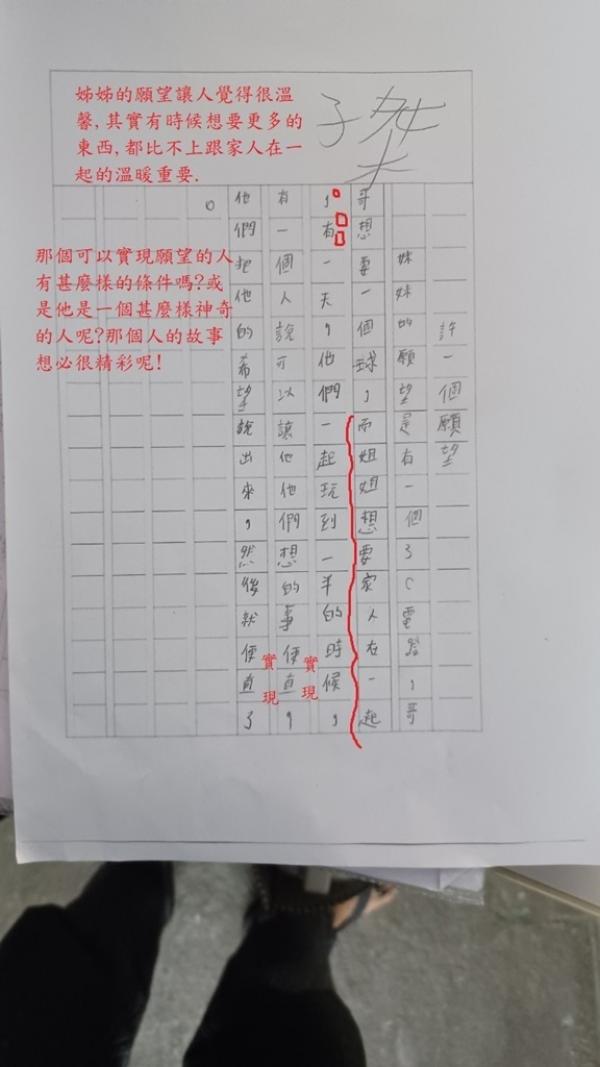 姊姊的願望讓人覺得很溫
馨,其實有時候想要更多的
東西,都比不上跟家人在一
起的溫暖重要.
許一個願望
妹妹的願望是有一個3C電器，哥
哥想要一個球，而姐姐想要家人在一起
，有一夫，他們一起玩到一半的時候，
有一個人說可以讓他他們想的事便直，
實現
他們把他的希望說出來，然後就便直了
實現
。
那個可以實現願望的人
有甚麼樣的條件嗎?或
是他是一個甚麼樣神奇
的人呢?那個人的故事
想必很精彩呢!